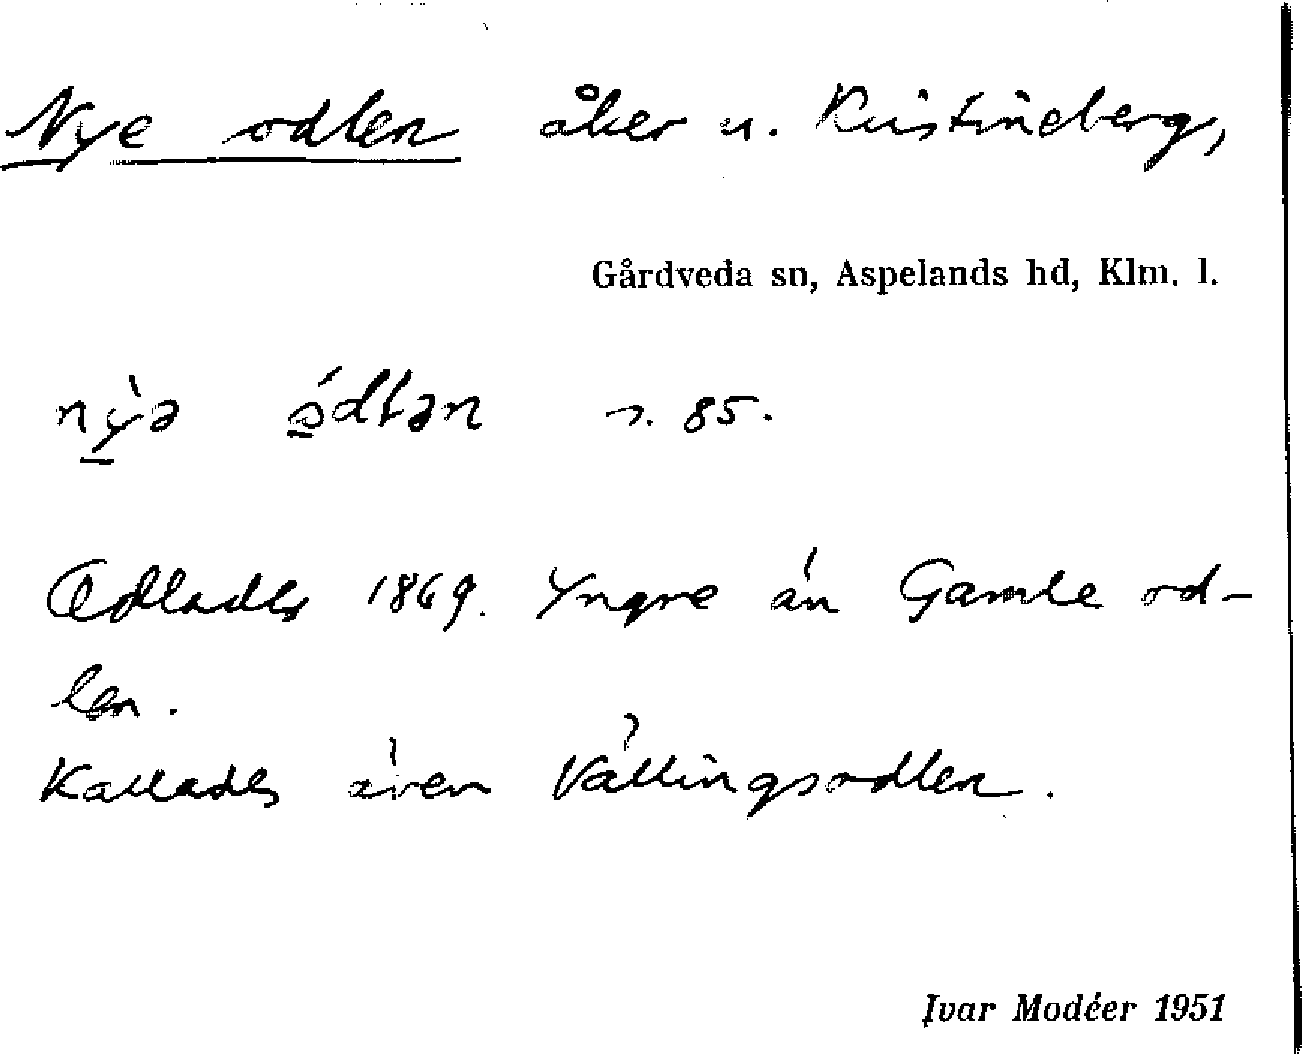 Nye odlen åker u. Kristineberg,
Gårdveda sn, Aspelands hd, Klm. l.
nỳ̱ə ó̱dlən s. 85.
Odlades 1869. Yngre än Gamle od-
len.
Kallades även Vällingsodlen.
Ivar Modéer 1951